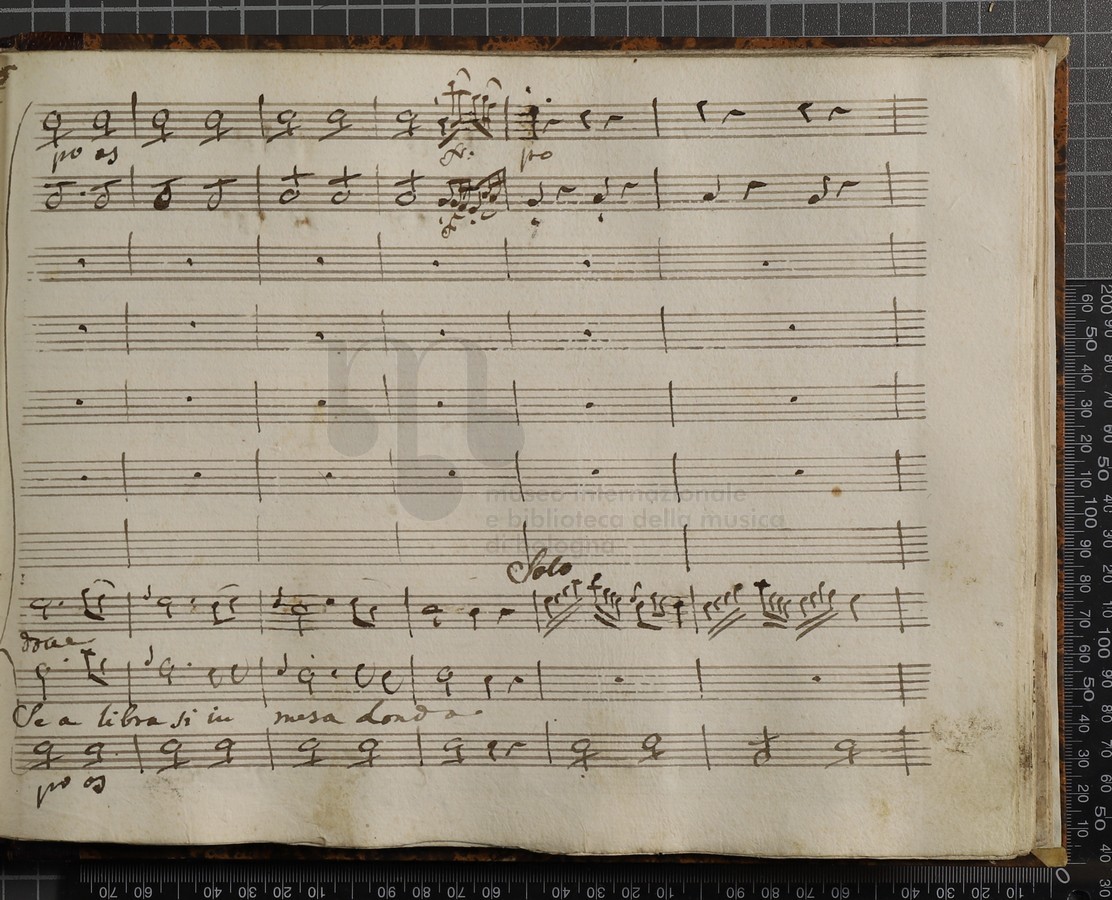 po as
f.
po
f.
museo internazionale
e biblioteca della musica
di bologna
Solo
dolce
Se a libra si in mesa donda
po as